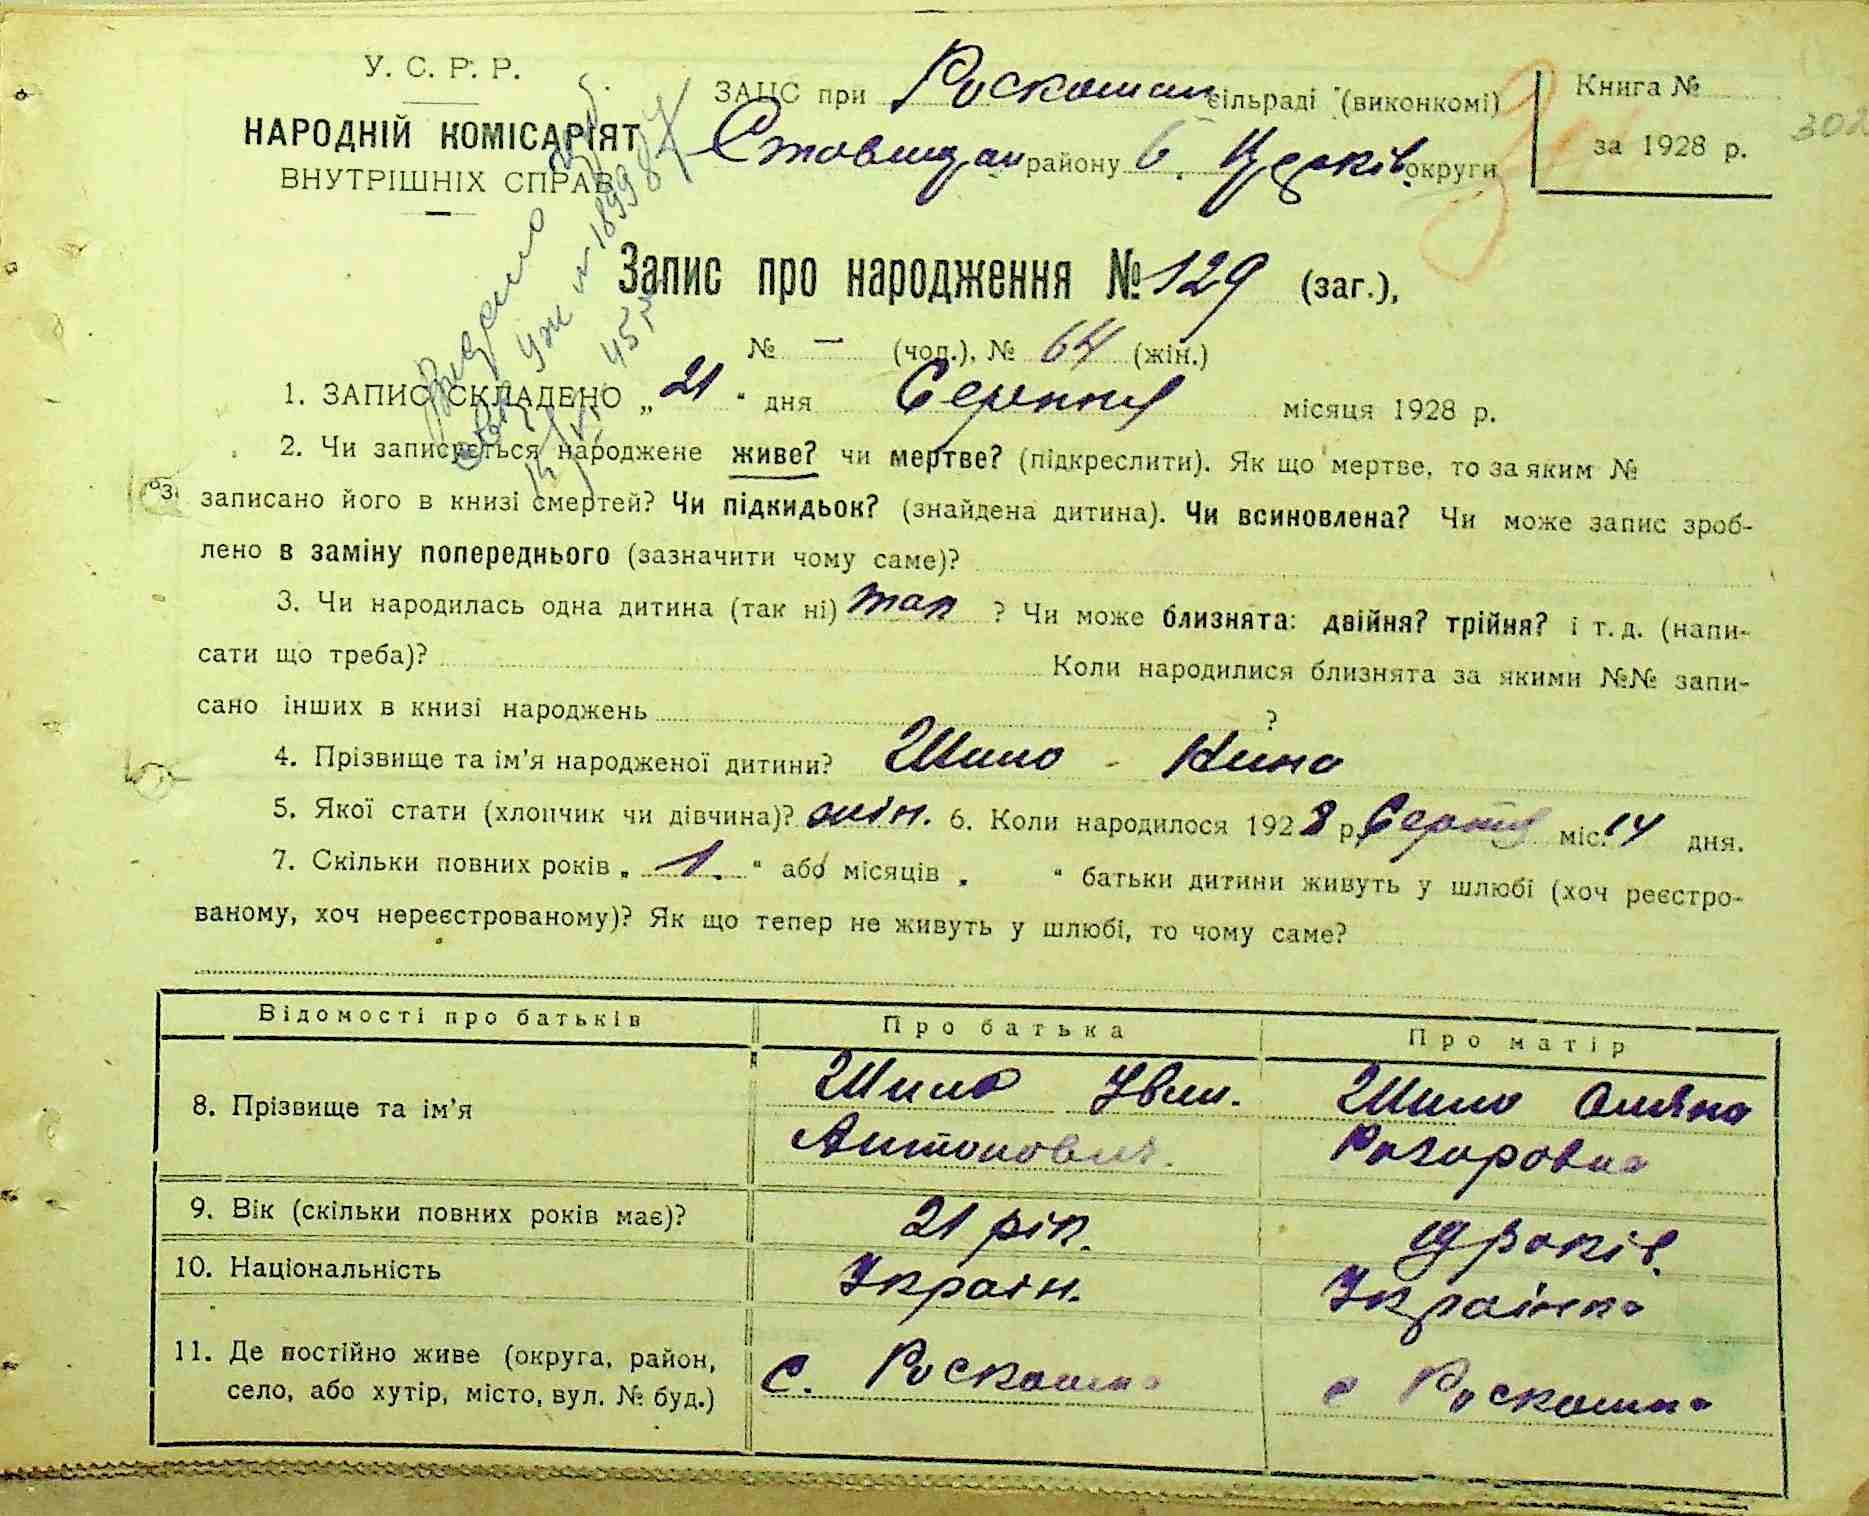 У. С. Р. Р.
НАРОДНІЙ КОМІСАРІЯТ
ВНУТРІШНІХ СПРАВ
ЗАЦС при Роскошан сільраді (виконкомі)
Ставищан району Б. Церків. округи
Книга №
за 1928 р.
302
Видано
18998
45 р
Запис про народження № 129 (заг.),
№ — (чол.), № 64 (жін.)
1. ЗАПИС СКЛАДЕНО „21“ дня Серпня місяця 1928 р.
2. Чи записується народжене живе? чи мертве? (підкреслити). Як що мертве, то за яким №
записано його в книзі смертей? Чи підкидьок? (знайдена дитина). Чи всиновлена? Чи може запис зроб-
лено в заміну попереднього (зазначити чому саме)?
3. Чи народилась одна дитина (так ні) так ? Чи може близнята: двійня? трійня? і т. д. (напи-
сати що треба)? Коли народилися близнята за якими №№ запи-
сано інших в книзі народжень ?
4. Прізвище та ім’я народженої дитини? Шило - Нина
5. Якої стати (хлопчик чи дівчина)? жін. 6. Коли народилося 1928 р. Серпня міс. 14 дня.
7. Скільки повних років „1.“ або місяців „ “ батьки дитини живуть у шлюбі (хоч реєстро-
ваному, хоч нереєстрованому)? Як що тепер не живуть у шлюбі, то чому саме?
Відомості про батьків Про батька Про матір
8. Прізвище та ім’я Шило Іван. Шило Оляна
Антонович.
9. Вік (скільки повних років має)? 21 рік. 19 років.
10. Національність Україн. Українка
11. Де постійно живе (округа, район,
село, або хутір, місто, вул. № буд.) с. Роскошна с Роскошна